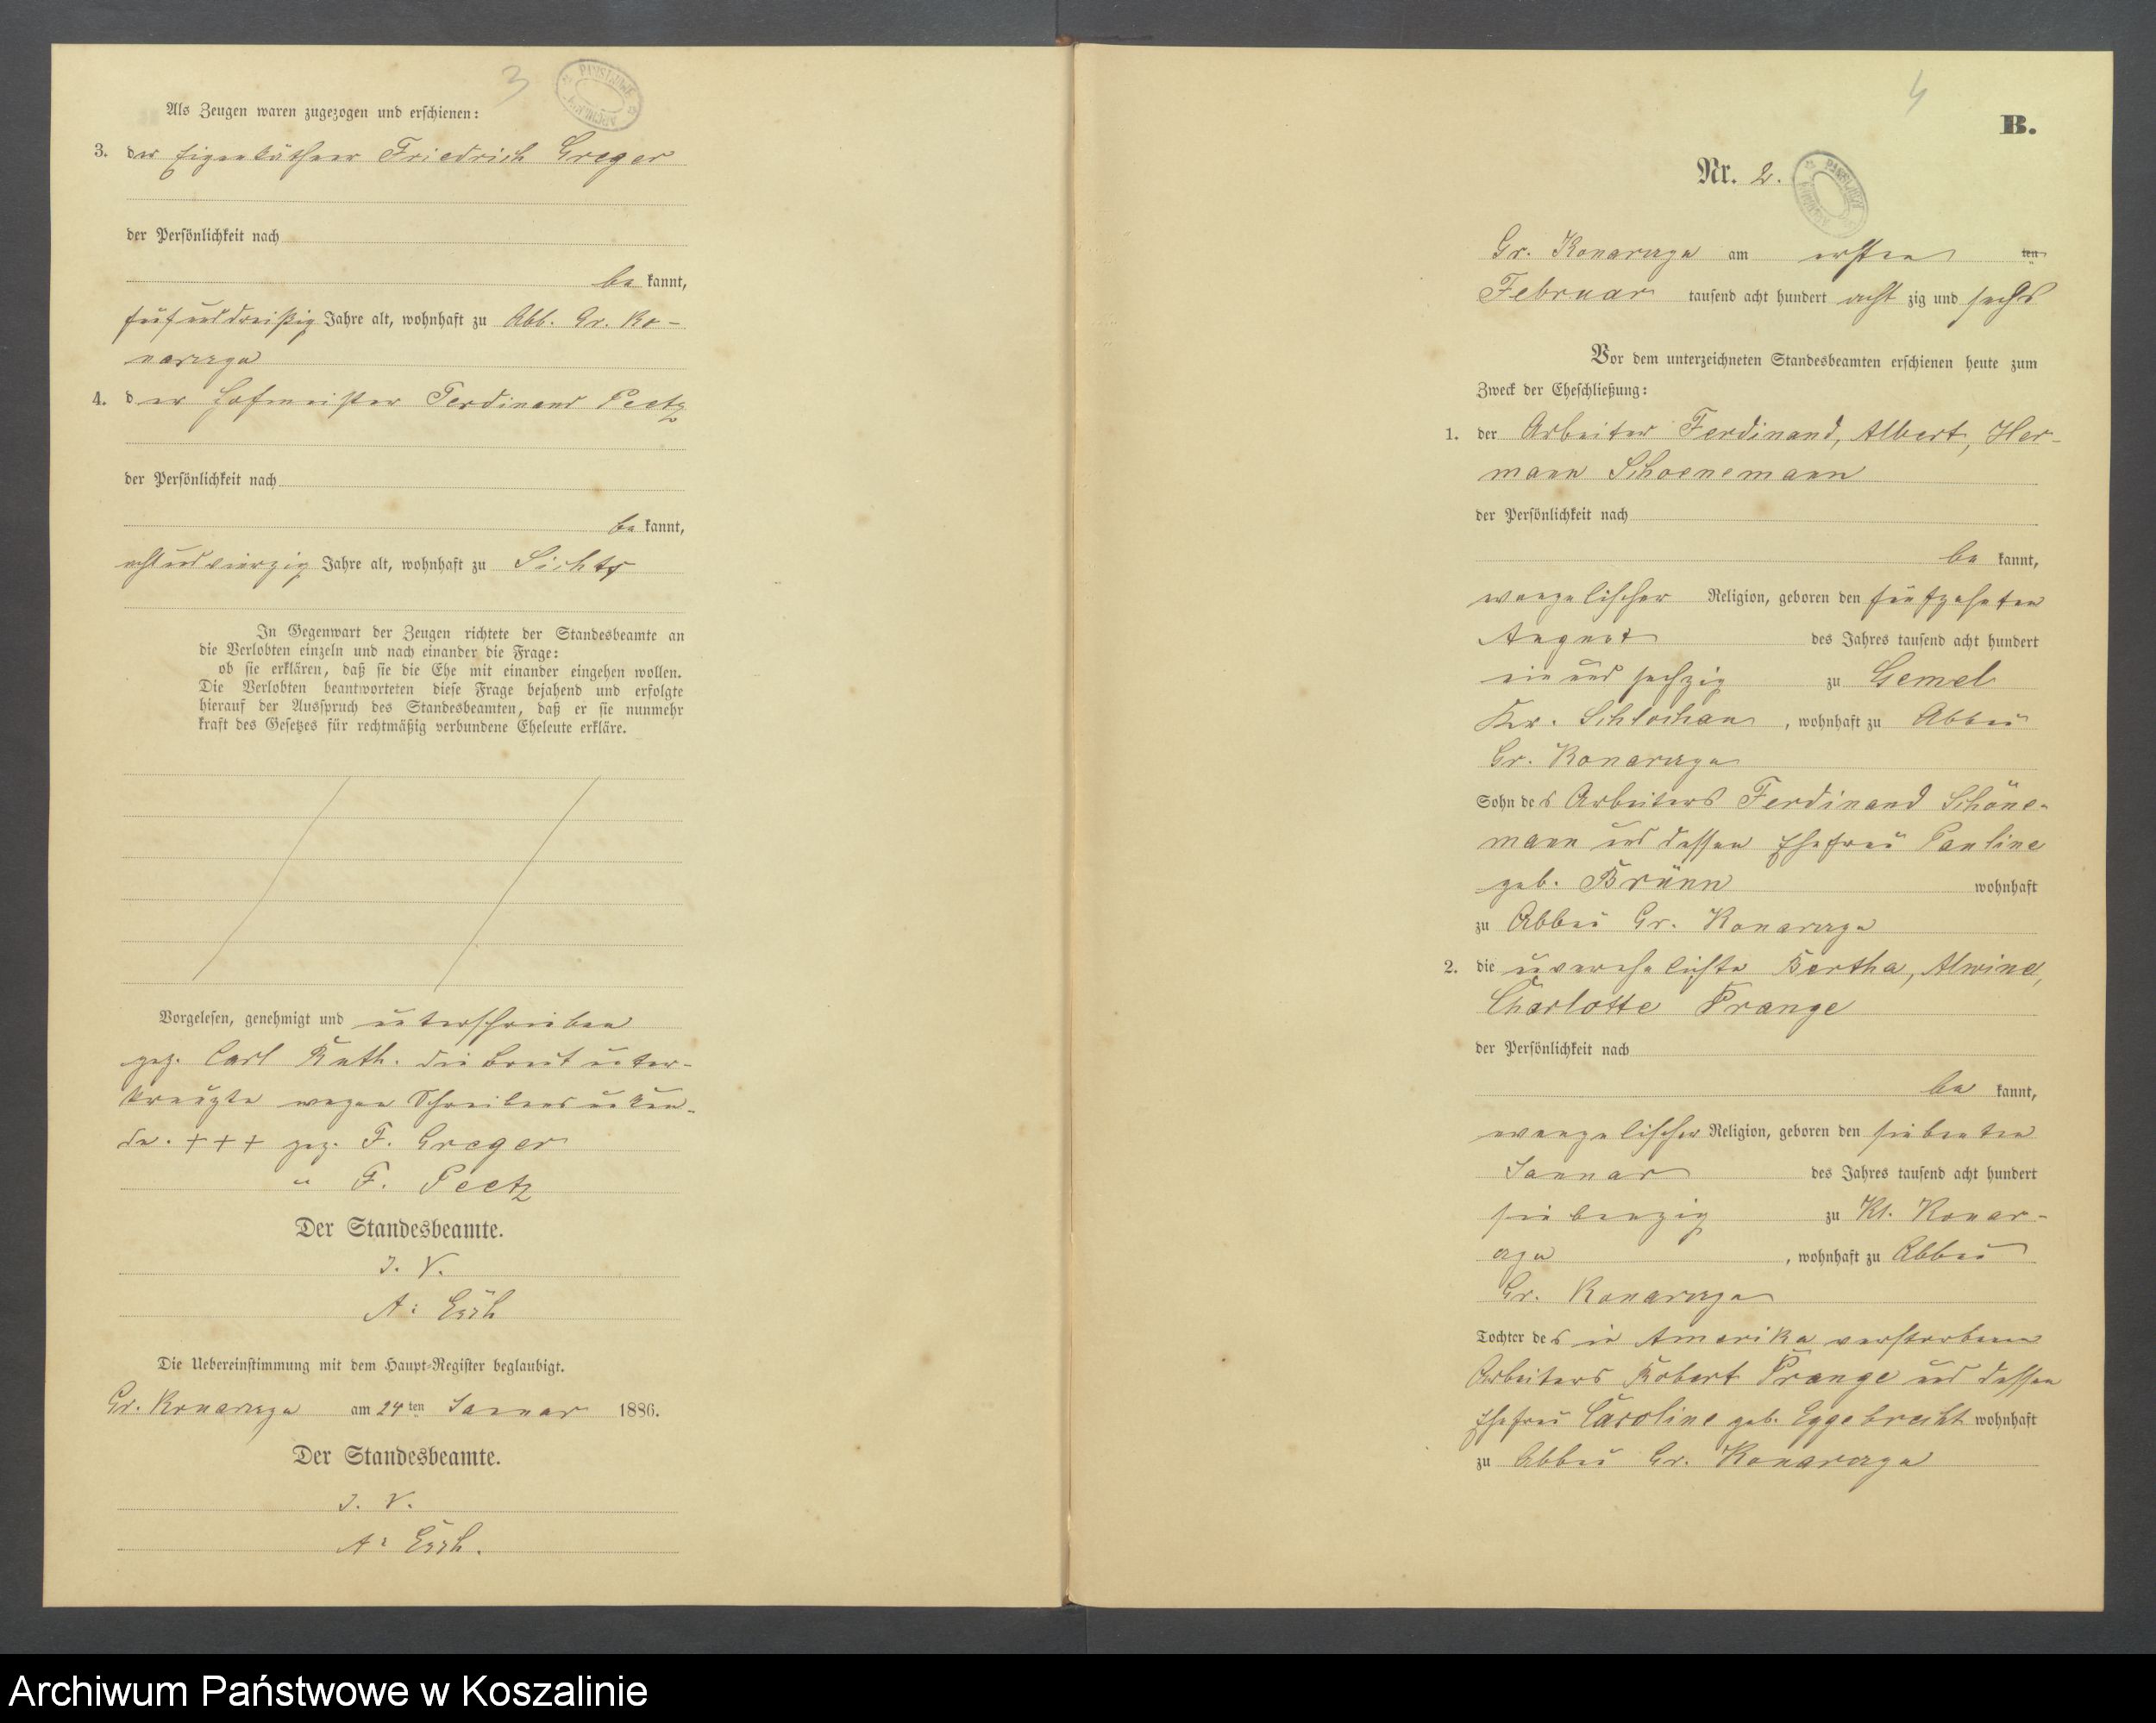 3
Als Zeugen waren zugezogen und erschienen:
3. der Eigenkäthner Friedrich Greger
der Persönlichkeit nach
be kannt,
fünfunddreißig Jahre alt, wohnhaft zu Abb. Gr. Ko-
narzyn
4. der Hofmeister Ferdinand Peetz
der Persönlichkeit nach
be kannt,
achtundvierzig Jahre alt, wohnhaft zu Sichts
In Gegenwart der Zeugen richtete der Standesbeamte an
die Verlobten einzeln und nach einander die Frage:
ob sie erklären, daß sie die Ehe mit einander eingehen wollen.
Die Verlobten beantworteten diese Frage bejahend und erfolgte
hierauf der Ausspruch des Standesbeamten, daß er sie nunmehr
kraft des Gesetzes für rechtmäßig verbundene Eheleute erkläre.
Vorgelesen, genehmigt und unterschrieben
gez. Carl Rath. die Braut unter-
kreuzte wegen Schreibensunkun-
de. +++ gez. F. Greger
" F. Peetz
Der Standesbeamte.
I. V.
A:
Die Uebereinstimmung mit dem Haupt-Register beglaubigt.
Gr. Konarzyn am 24 ten Januar 1886.
Der Standesbeamte.
I. V.
A:
4
B.
Nr. 2.
Gr. Konarzyn am ersten ten
Februar tausend acht hundert acht zig und sechs
Vor dem unterzeichneten Standesbeamten erschienen heute zum
Zweck der Eheschließung:
1. der Arbeiter Ferdinand, Albert, Her-
mann Schoenemann
der Persönlichkeit nach
be kannt,
evangelischer Religion, geboren den fünfzehnten
August des Jahres tausend acht hundert
ein und sechzig zu Gemel
Kr. Schlochau, wohnhaft zu Abbau
Gr. Konarzyn
Sohn des Arbeiters Ferdinand Schöne-
mann und dessen Ehefrau Pauline
geb. Brünn wohnhaft
zu Abbau Gr. Konarzyn
2. die unverehelichte Bertha, Alwine,
Charlotte Prange
der Persönlichkeit nach
be kannt,
evangelischer Religion, geboren den siebenten
Januar des Jahres tausend acht hundert
siebenzig zu Kl. Konar-
zyn, wohnhaft zu Abbau
Gr. Konarzyn
Tochter des in Amerika verstorbenen
Arbeiters Robert Prange und dessen
Ehefrau Caroline geb. Eggebrecht wohnhaft
zu Abbau Gr. Konarzyn
Archiwum Państwowe w Koszalinie